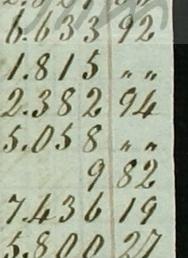 6.633 92
1.815 " "
2.382 94
5.058 " "
9 82
7.436 19
5.800 27